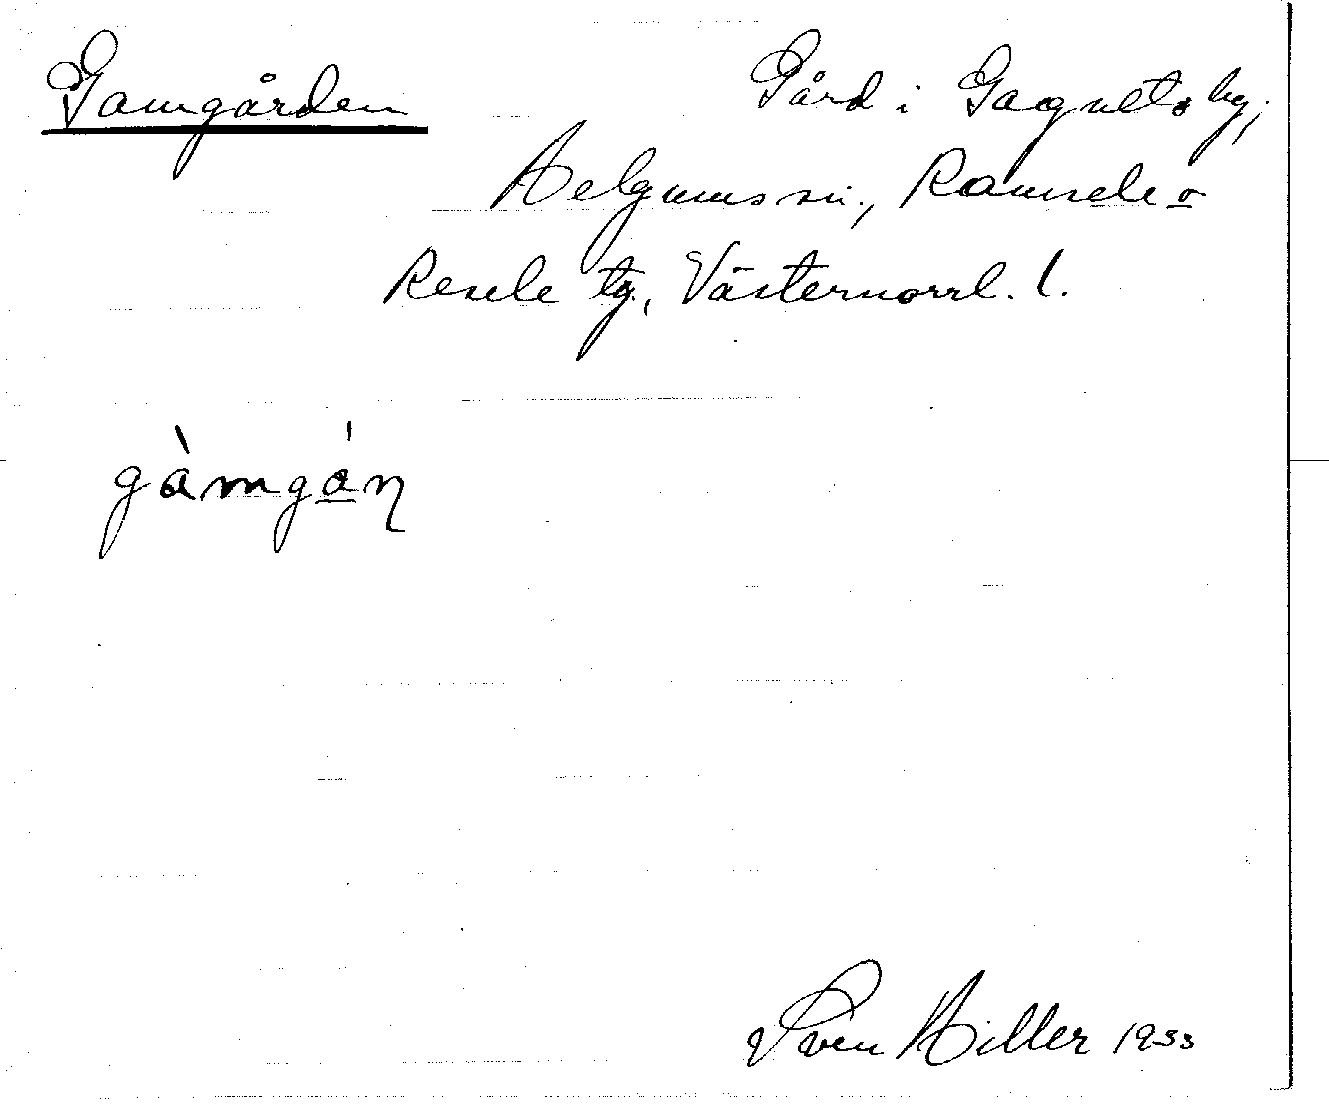 Gamgården Gård i Gagnets by,
Helgums sn., Ramsele o
Resele tg, Västernorrl. l.
gàmgán
Sven Hiller 1933